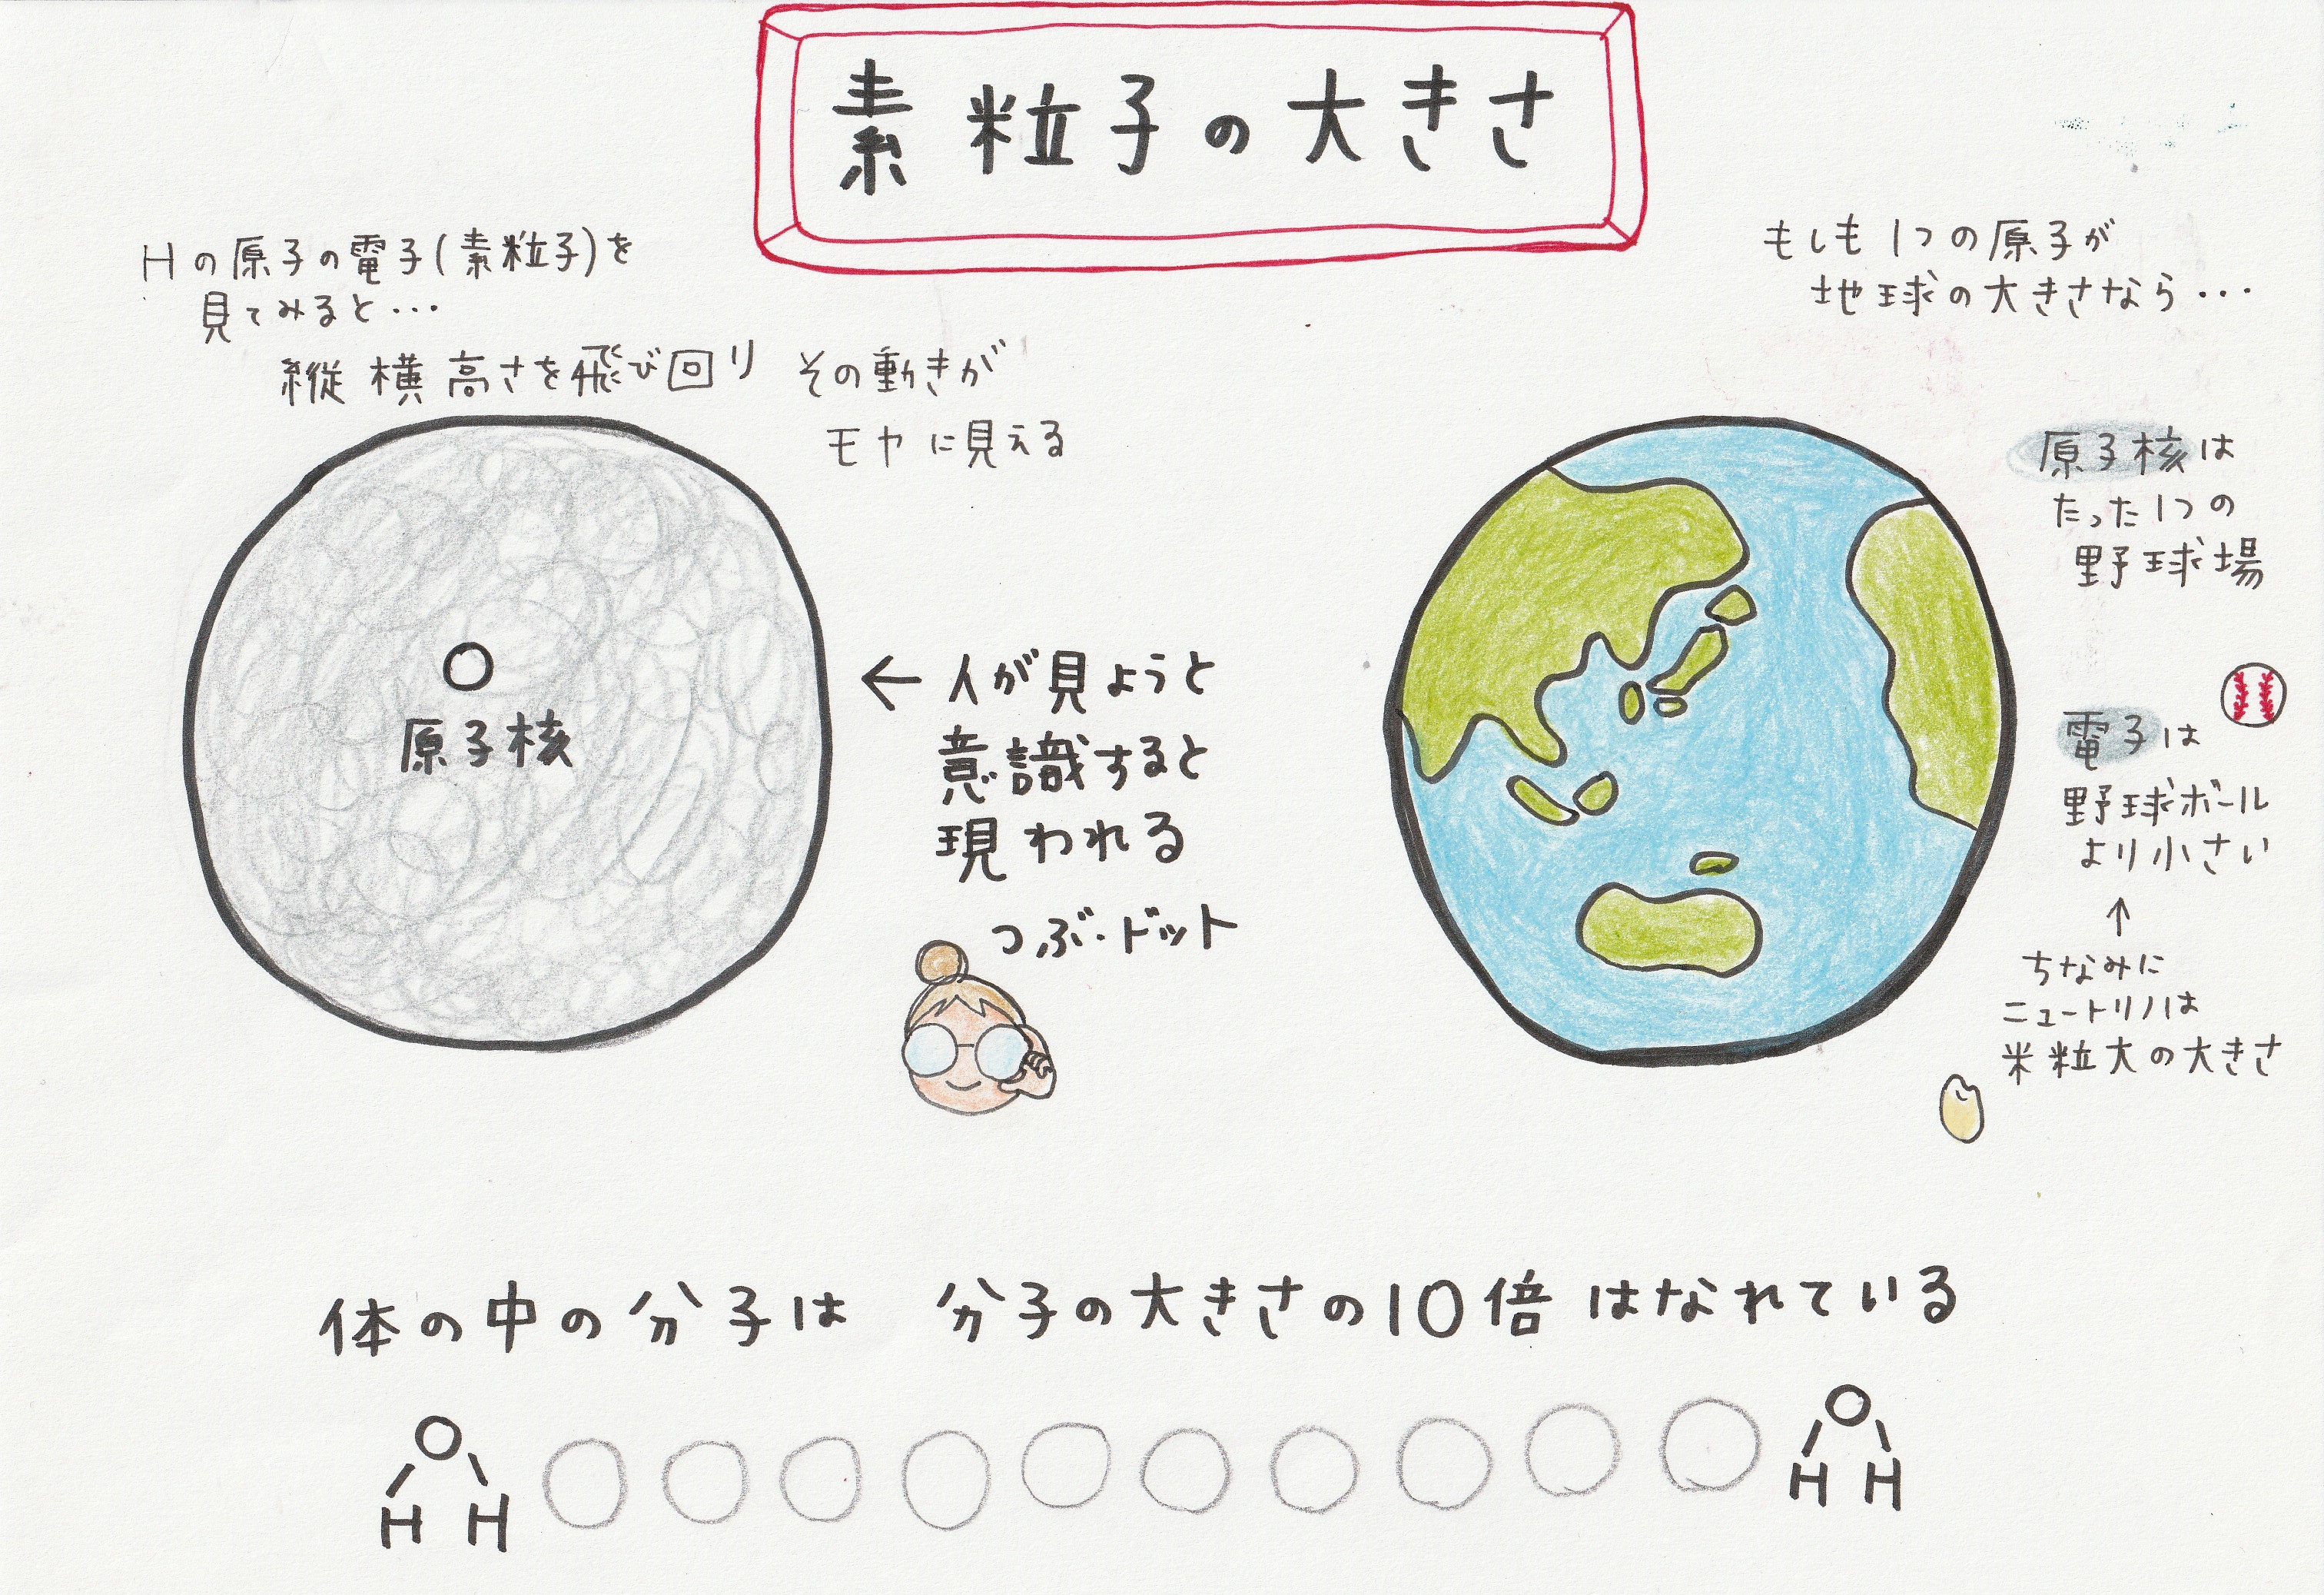 素粒子の大きさ
Hの原子の電子(素粒子)を
見てみると…
縦横高さを飛び回り その動きが
モヤに見える
原子核
← 人が見ようと
意識すると
現われる
つぶ・ドット
もしも1つの原子が
地球の大きさなら…
原子核は
たった1つの
野球場
電子は
野球ボール
より小さい
↑
ちなみに
ニュートリノは
米粒大の大きさ
体の中の分子は 分子の大きさの10倍はなれている
O
H H
O
H H